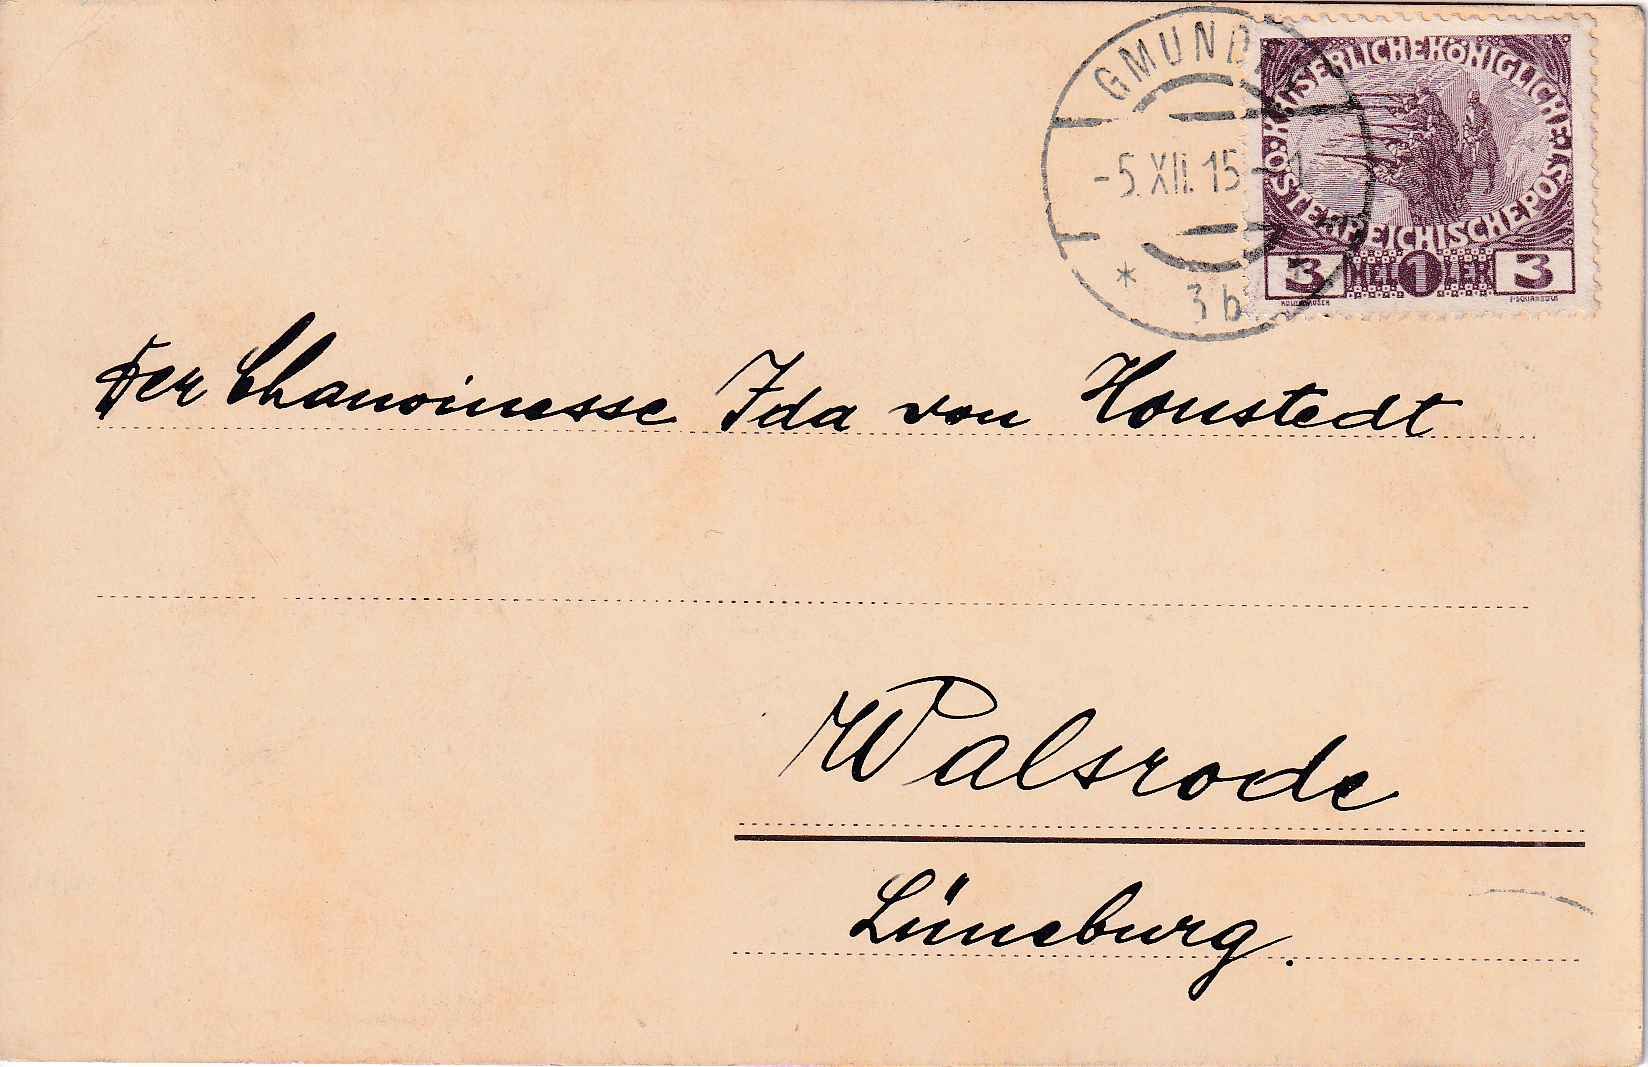 GMUNDEN
-5.XII.15-1
* 3b *
KAISERLICHE KÖNIGLICHE
ÖSTERREICHISCHE POST
3 HELLER 3
1
Der Chanoinesse Ida von Honstedt
Walsrode
Lüneburg.